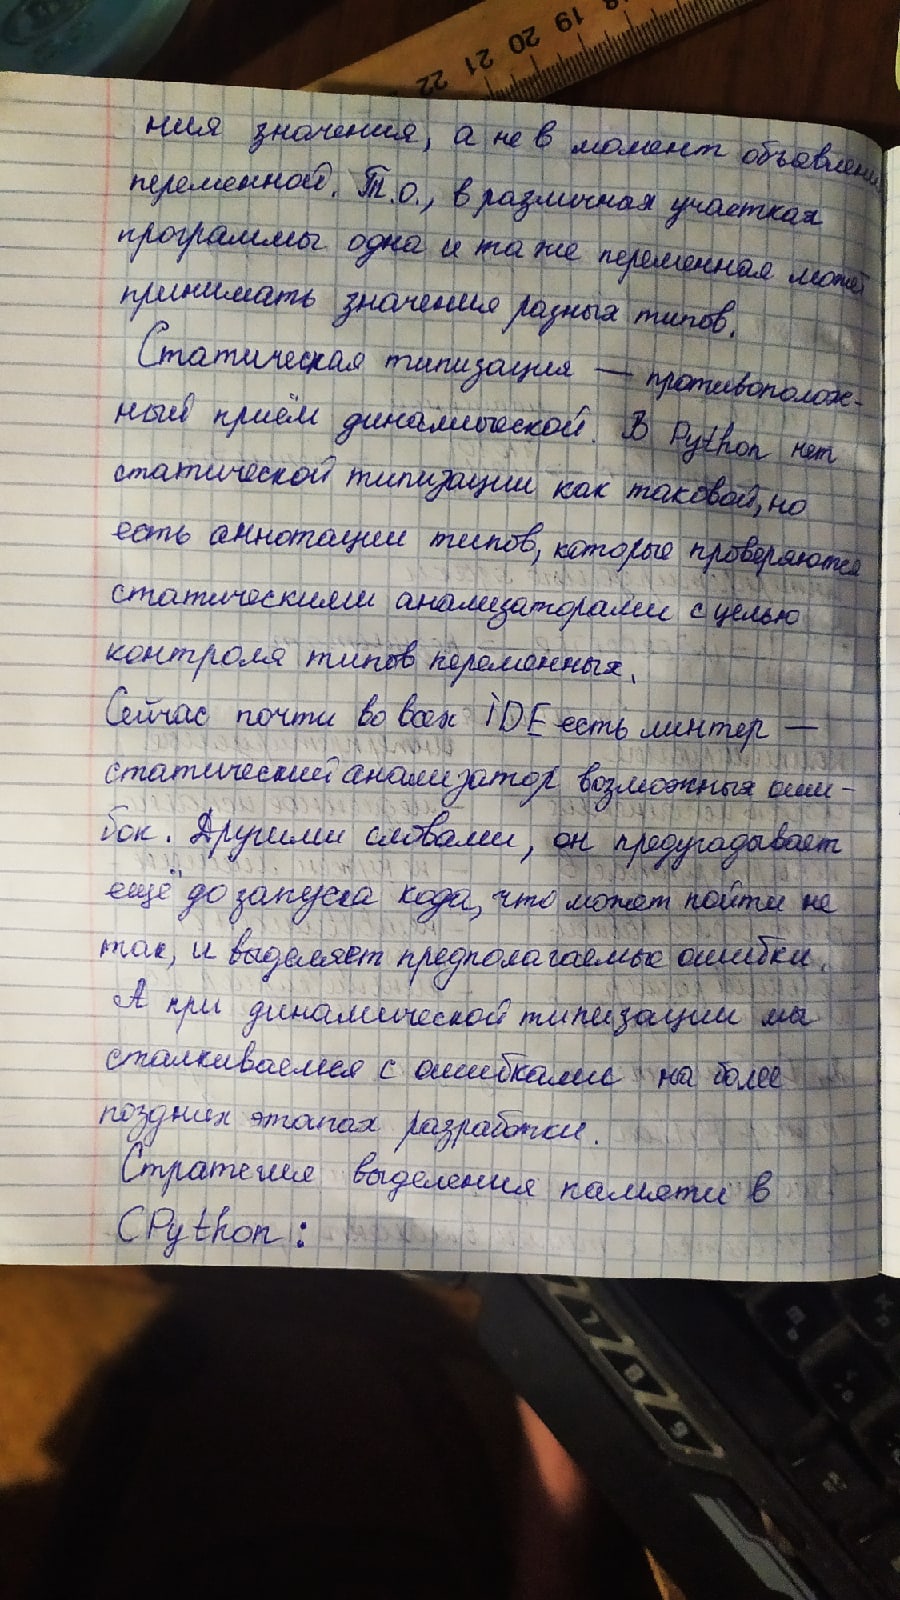 18 19 20 21 22
ния значения, а не в момент объявлени
переменной. Т.о., в различных участках
программы одна и та же переменная может
принимать значения разных типов.
Статическая типизация — противополож-
ный приём динамической. В Python нет
статической типизации как таковой, но
есть аннотации типов, которые проверяются
статическими анализаторами с целью
контроля типов переменных.
Сейчас почти во всех IDE есть линтер —
статический анализатор возможных оши-
бок. Другими словами, он предугадывает
ещё до запуска кода, что может пойти не
так, и выделяет предполагаемые ошибки.
А при динамической типизации мы
сталкиваемся с ошибками на более
поздних этапах разработки.
Стратегия выделения памяти в
CPython: